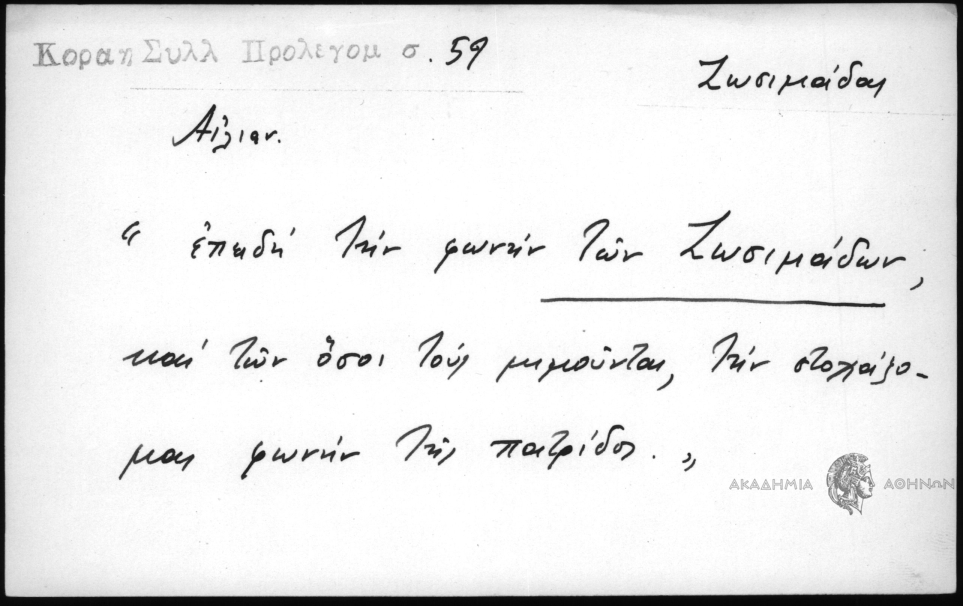 Κοραη Συλλ Προλεγομ σ. 59
Ζωσιμάδαι
Αἰλιαν.
“ ἐπειδή τήν φωνήν τῶν Ζωσιμάδων,
καί τῶν ὅσοι τούς μιμοῦνται, τήν στοχάζο-
μαι φωνήν τῆς πατρίδος. „
ΑΚΑΔΗΜΙΑ ΑΘΗΝΩΝ